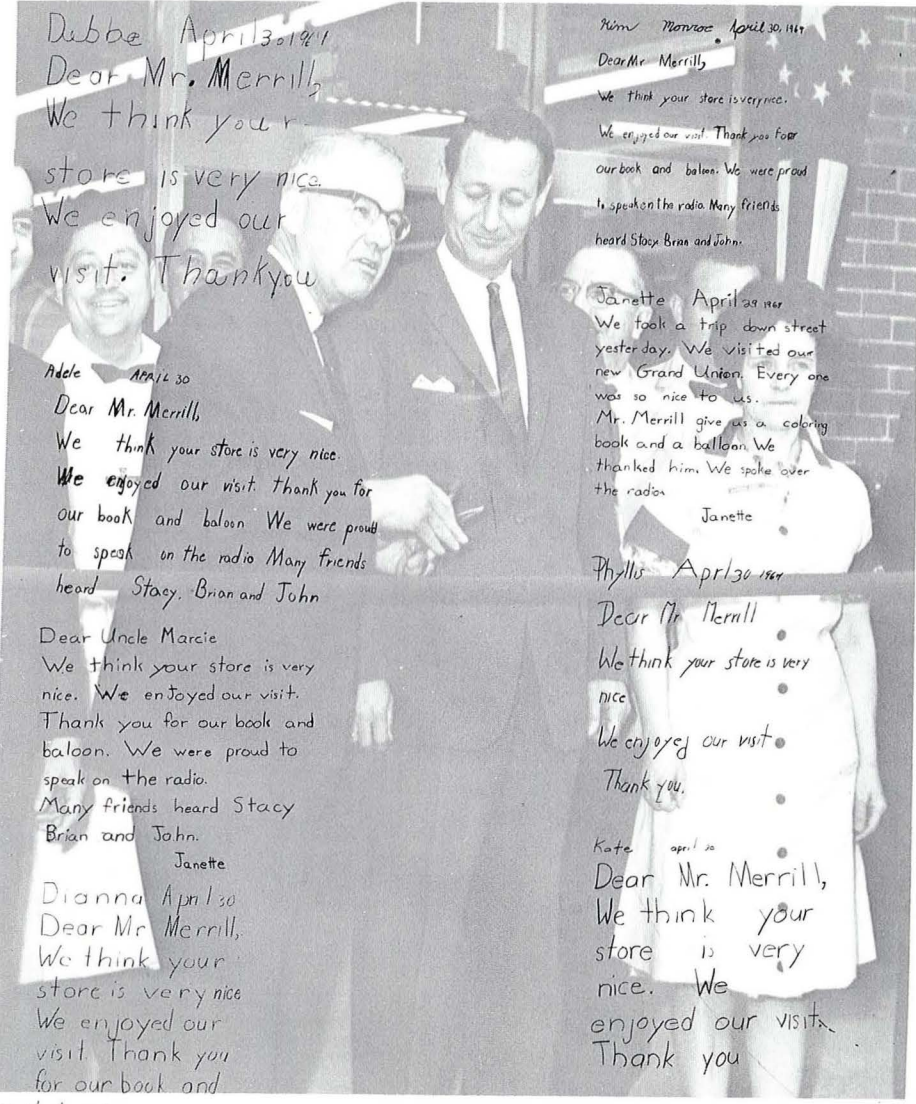 Debbe April 30 1969
Dear Mr. Merrill,
We think your
store is very nice.
We enjoyed our
visit. Thankyou
Adele APRIL 30
Dear Mr. Merrill,
We think your store is very nice.
We enjoyed our visit. thank you for
our book and baloon We were proud
to speak on the radio Many friends
heard Stacy, Brian and John
Dear Uncle Marcie
We think your store is very
nice. We enJoyed our visit.
Thank you for our book and
baloon. We were proud to
speak on the radio.
Many friends heard Stacy
Brian and John.
Janette
Dianna April 30
Dear Mr Merrill,
We think your
store is very nice
We enjoyed our
visit Thank you
for our book and
Kim Monroe April 30, 1969
Dear Mr Merrill,
We think your store is very nice.
We enjoyed our visit. Thank you foor
our book and baloon. We were proud
to speak on the radio. Many friends
heard Stacy Brian and John.
Janette April 29 1969
We took a trip down street
yesterday. We visited our
new Grand Union. Every one
was so nice to us.
Mr. Merrill give us a coloring
book and a balloon. We
thanked him. We spoke over
the radio.
Janette
Phyllis Aprl 30 1969
Dear Mr Merrill
We think your store is very
nice
We enjoyed our visit.
Thank you.
Kate april 30
Dear Mr. Merrill,
We think your
store is very
nice. We
enjoyed our visit.
Thank you